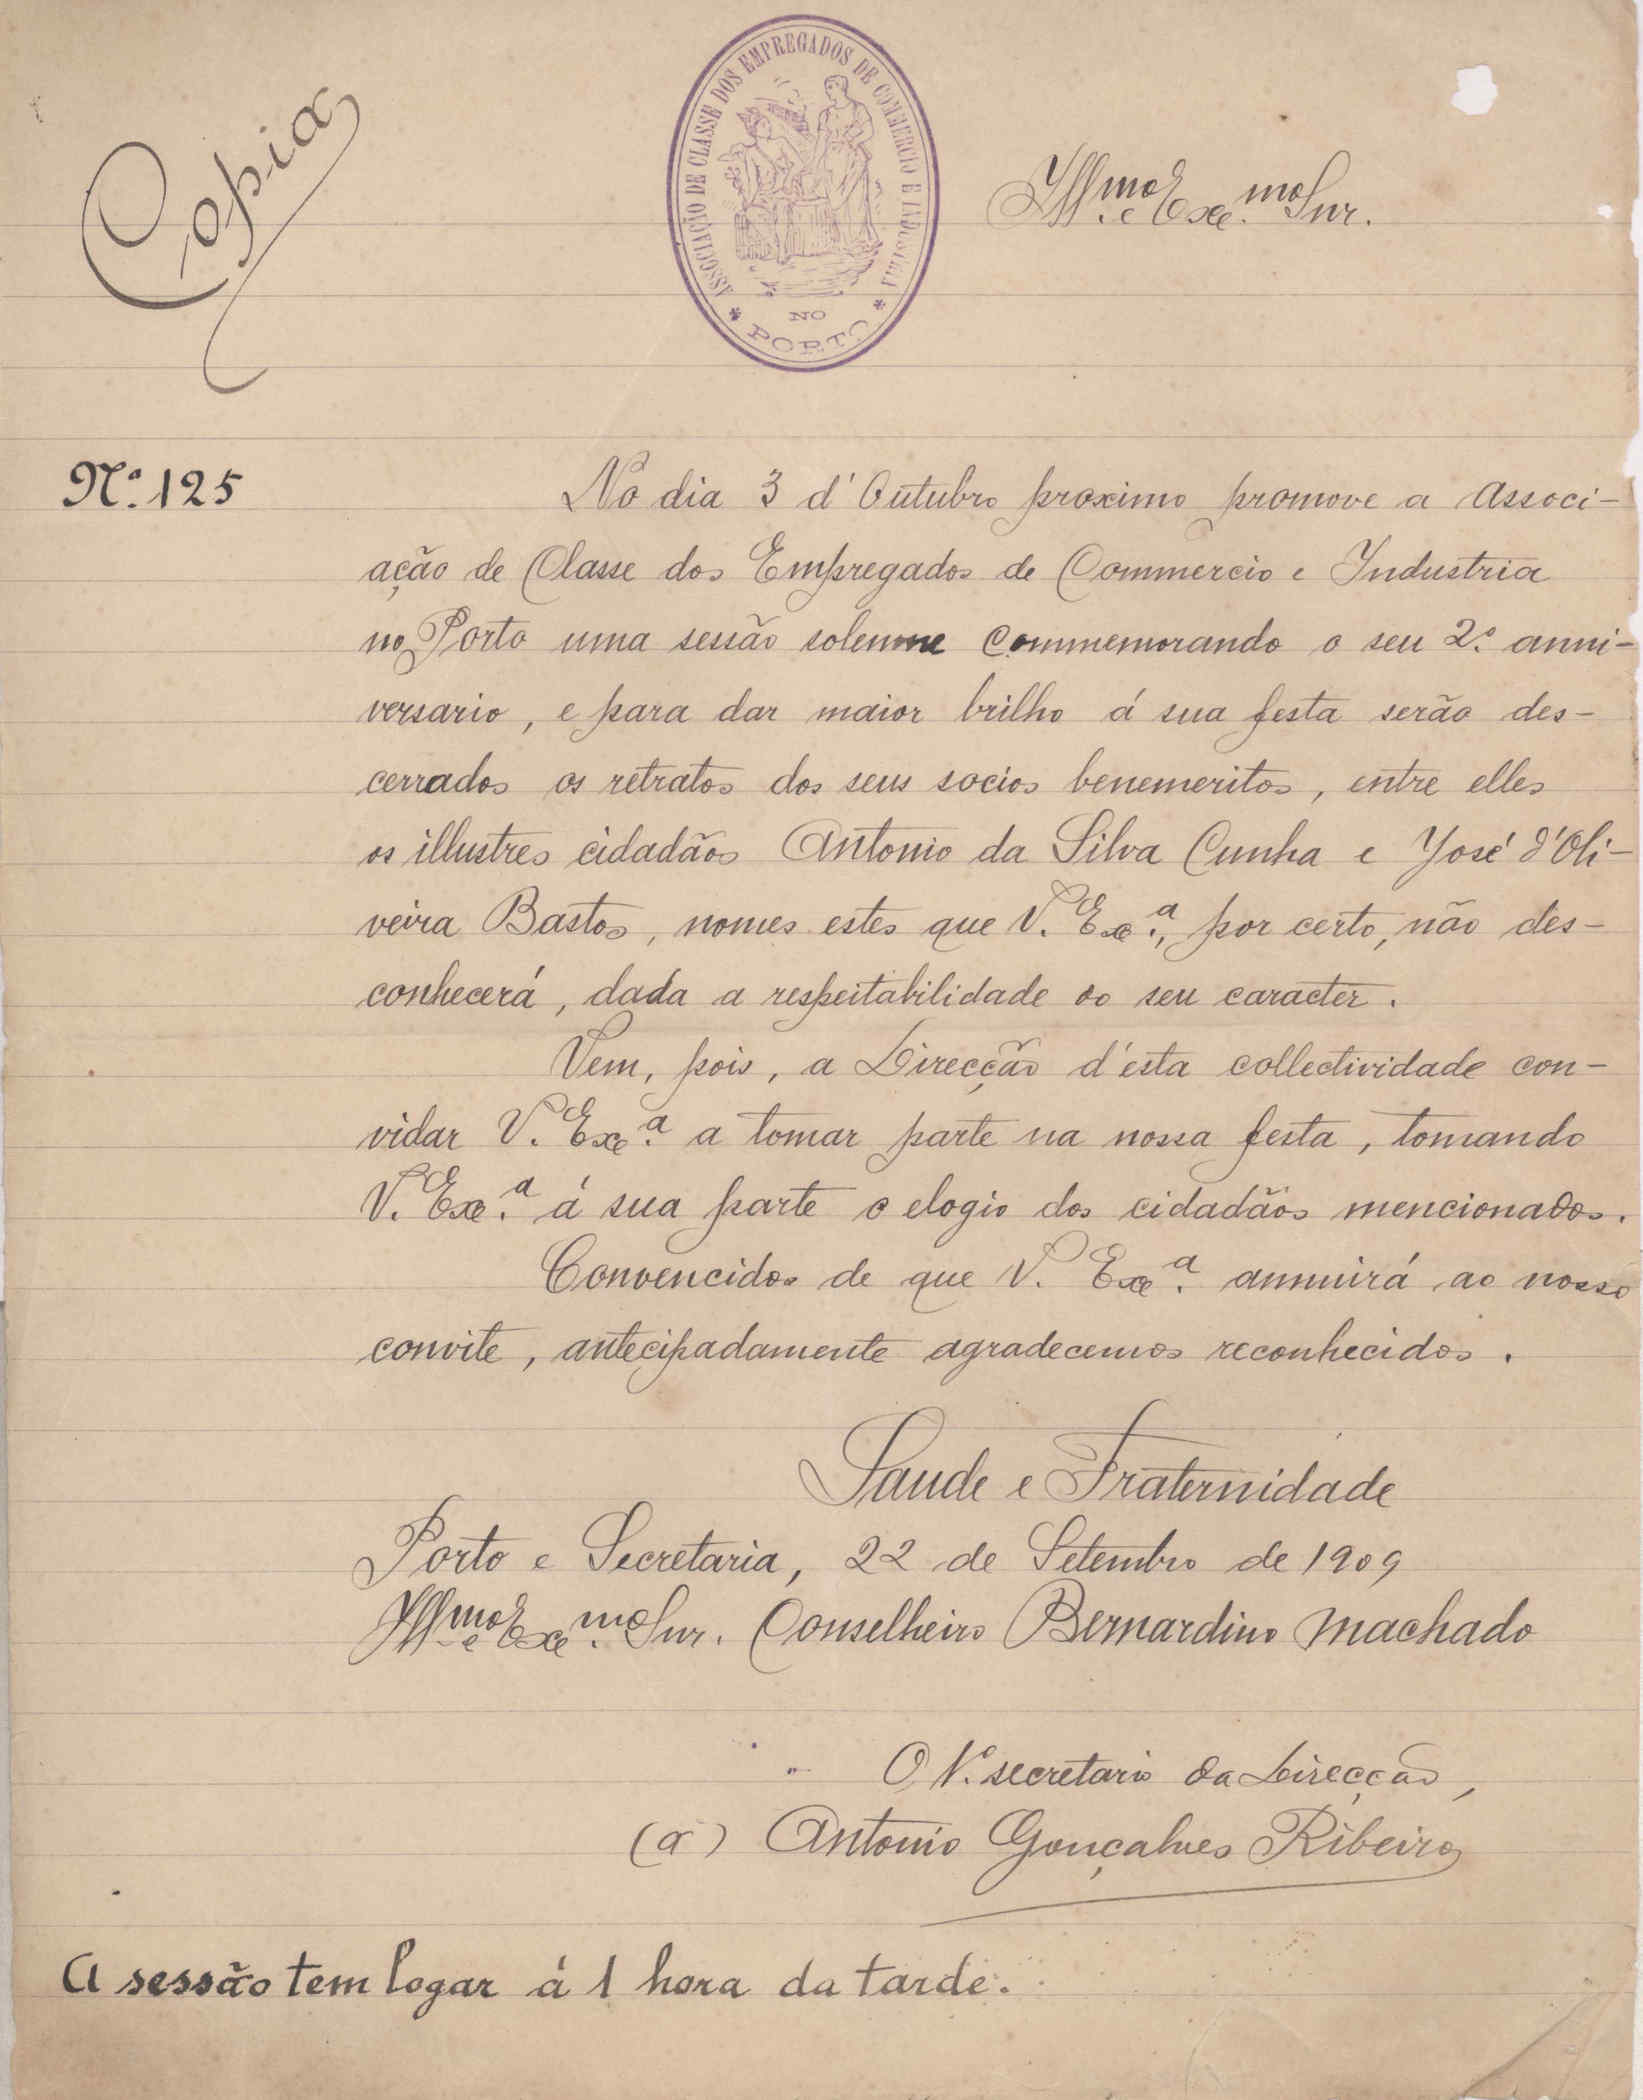 Copia
ASSOCIAÇÃO DE CLASSE DOS EMPREGADOS DE COMMERCIO E INDUSTRIA
* NO *
PORTO
Ill.mo e Exc.mo Snr.
N.º 125
No dia 3 d'Outubro proximo promove a Associ-
ação de Classe dos Empregados de Commercio e Industria
no Porto uma sessão solemne commemorando o seu 2.º anni-
versario, e para dar maior brilho á sua festa serão des-
cerrados os retratos dos seus socios benemeritos, entre elles
os illustres cidadãos Antonio da Silva Cunha e José d'Oli-
veira Bastos, nomes estes que V. Exc.ª, por certo, não des-
conhecerá, dada a respeitabilidade do seu caracter.
Vem, pois, a Direcção d'esta collectividade con-
vidar V. Exc.ª a tomar parte na nossa festa, tomando
V. Exc.ª á sua parte o elogio dos cidadãos mencionados.
Convencidos de que V. Exc.ª annuirá ao nosso
convite, antecipadamente agradecemos reconhecidos.
Saude e Fraternidade
Porto e Secretaria, 22 de Setembro de 1909
Ill.mo e Exc.mo Snr. Conselheiro Bernardino Machado
O 1.º secretario da Direcção,
(a) Antonio Gonçalves Ribeiro
A sessão tem logar á 1 hora da tarde.